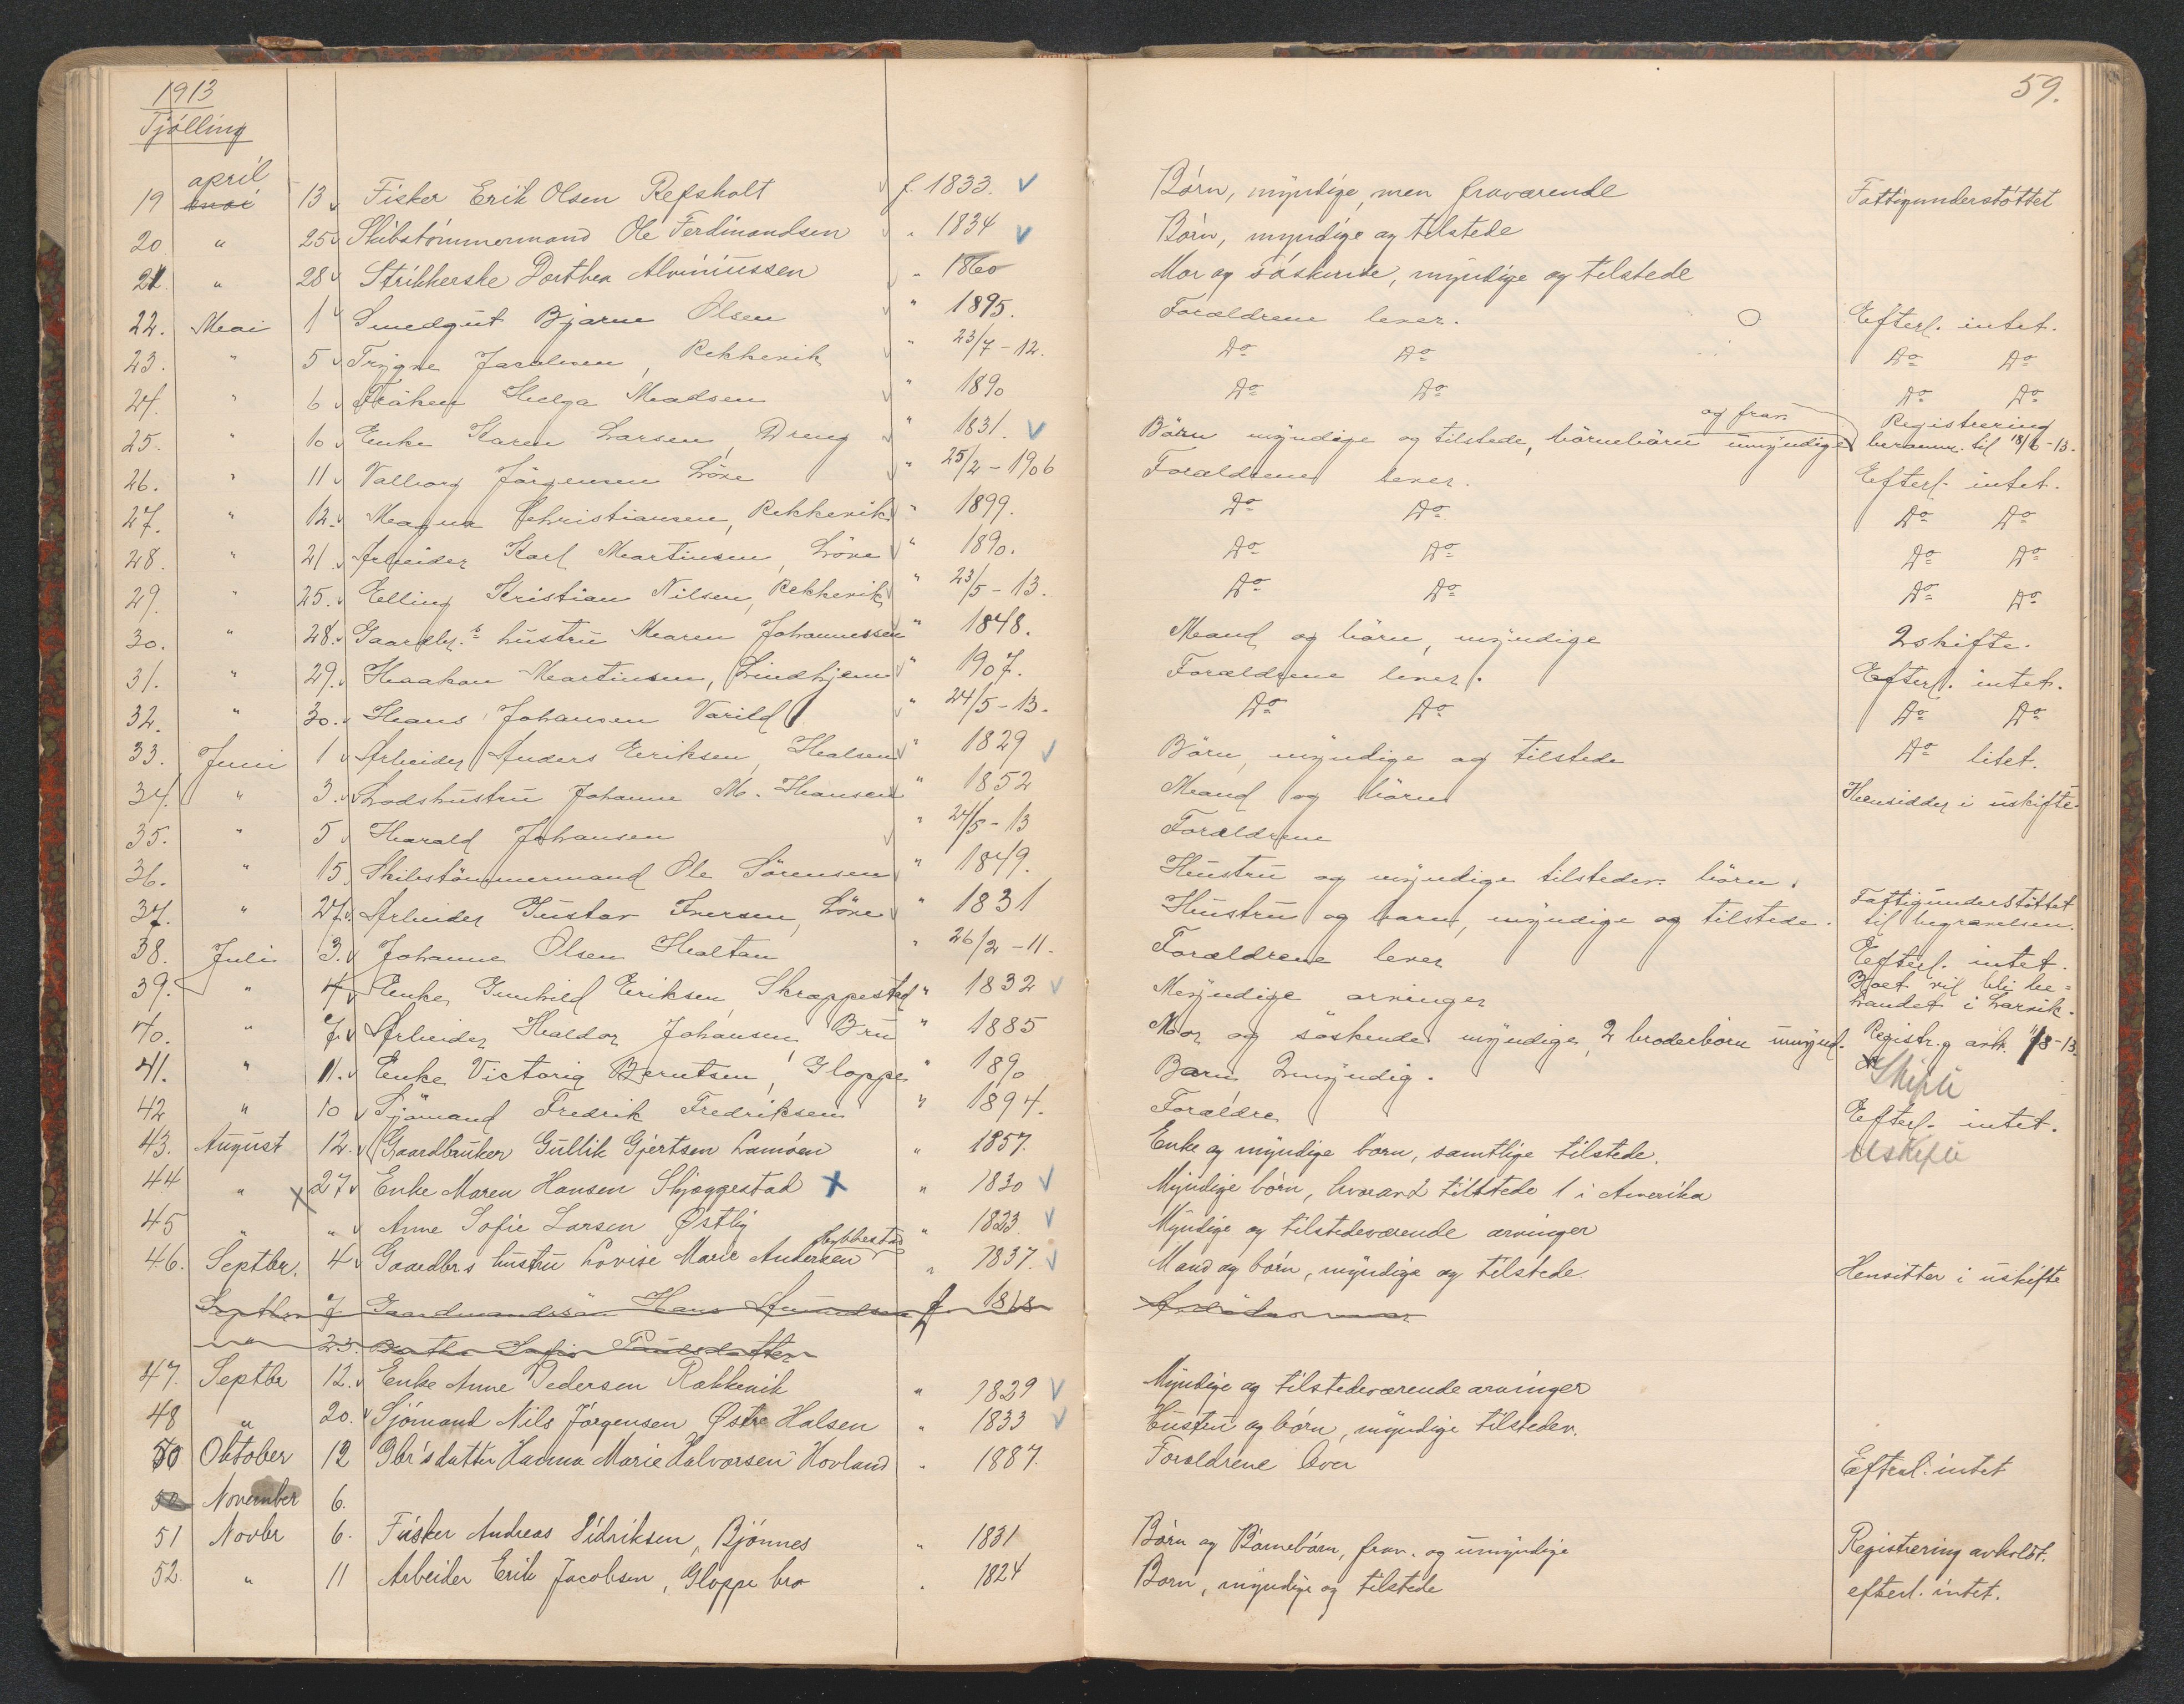 1913
Tjölling
59.
april
19 mai 13 Fisker Erik Olsen Refsholt f. 1833. Börn, myndige, men fraværende Fattigunderstöttet
20 " 25 Skibstömmermand Ole Ferdinandsen " 1834 Börn, myndige og tilstede
21. " 28 Strikkerske Dorthea Alviniussen " 1860 Mor og söskende, myndige og tilstede
22. Mai 1 Smedgut Bjarne Olsen " 1895. Forældrene lever. Efterl. intet.
23. " 5 Trygve Jacobsen, Rekkevik " 23/7-12. Do Do Do Do
24. " 6 Fröken Helga Madsen " 1890 Do Do Do Do
25. " 10 Enke Karen Larsen, Dreng " 1831. Börn myndige og tilstede, börnebörn umyndige og frav. Registrering beramm. til 18/6-13.
26. " 11 Valborg Jörgensen Löve " 25/2-1906 Forældrene lever. Efterl. intet.
27. " 12. Magna Christiansen, Rekkevik " 1899. Do Do Do Do
28. " 21. Arbeider Karl Martinsen, Löve " 1890. Do Do Do Do
29. " 25. Elling Kristian Nilsen, Rekkevik " 23/5-13. Do Do Do Do
30. " 28. Gaardbr.s hustru Maren Johannessen " 1848. Mand og börn, myndige Uskifte.
31. " 29. Haakon Martinsen, Lindhjem " 1907. Forældrene lever. Efterl. intet.
32. " 30. Hans Johansen Varild " 24/5-13. Do Do Do Do
33. Juni 1 Arbeider Anders Eriksen, Halsen " 1829 Börn, myndige og tilstede Do litet.
34. " 3. Lodshustru Johanne M. Hansen " 1852 Mand og börn Hensidder i uskifte
35. " 5 Harald Johansen " 24/5-13 Forældrene
36. " 15 Skibstömmermand Ole Sörensen " 1849. Hustru og myndige tilstedev. börn.
37. " 27. Arbeider Gustav Iversen, Löve " 1831 Hustru og barn, myndige og tilstede. Fattigunderstöttet til begravelsen.
38. Juli 3. Johanne Olsen Haltan " 26/2-11. Forældrene lever Efterl. intet.
39. " 4 Enke Gunhild Eriksen, Skrappestad " 1832 Myndige arvinger Boet vil bli behandlet i Larvik.
40. " 7. Arbeider Haldor Johansen Bru " 1885 Mor og söskende myndige, 2 broderbörn umynd. Registr.g avh. /8-13.
41. " 11. Enke Victoria Berntsen, Gloppe " 1890 Barn Umyndig. Skifte
42 " 10 Sjömand Fredrik Fredriksen " 1894. Forældre Efterl. intet.
43. August 12. Gaardbruker Gullik Gjertsen Lamöen " 1857. Enke og myndige börn, samtlige tilstede. Uskifte
44 " x 27 Enke Maren Hansen Skjæggestad x " 1830 Myndige börn, hvorav 2 tilstede 1 i Amerika
45 " " Anne Sofie Larsen Østby " 1823 Myndige og tilstedeværende arvinger
46. Septbr. 4 Gaardbrs hustru Lovise Marie Andersen " 1837. Mand og börn, myndige og tilstede. Hensitter i uskifte
Septbr 7 Gaardmandssön Hans Amundsen f. 1818
" 23. Berthe Sofie Paulsdatter
47. Septbr 12. Enke Anne Pedersen Rækkevik " 1829 Myndige og tilstedeværende arvinger
48 " 20. Sjömand Nils Jörgensen Østre Halsen " 1833 Hustru og börn, myndige tilstedev.
50 Oktober 12 Gbr's datter Hanna Marie Halvorsen Hovland " 1887. Forældrene lever Efterl. intet
November 6.
51 Novbr 6. Fisker Andreas Didriksen, Bjönnes " 1831 Börn og Börnebörn, frav. og umyndige Registrering avholdt.
52. " 11 Arbeider Erik Jacobsen, Gloppe bro " 1824 Börn, myndige og tilstede efterl. intet.